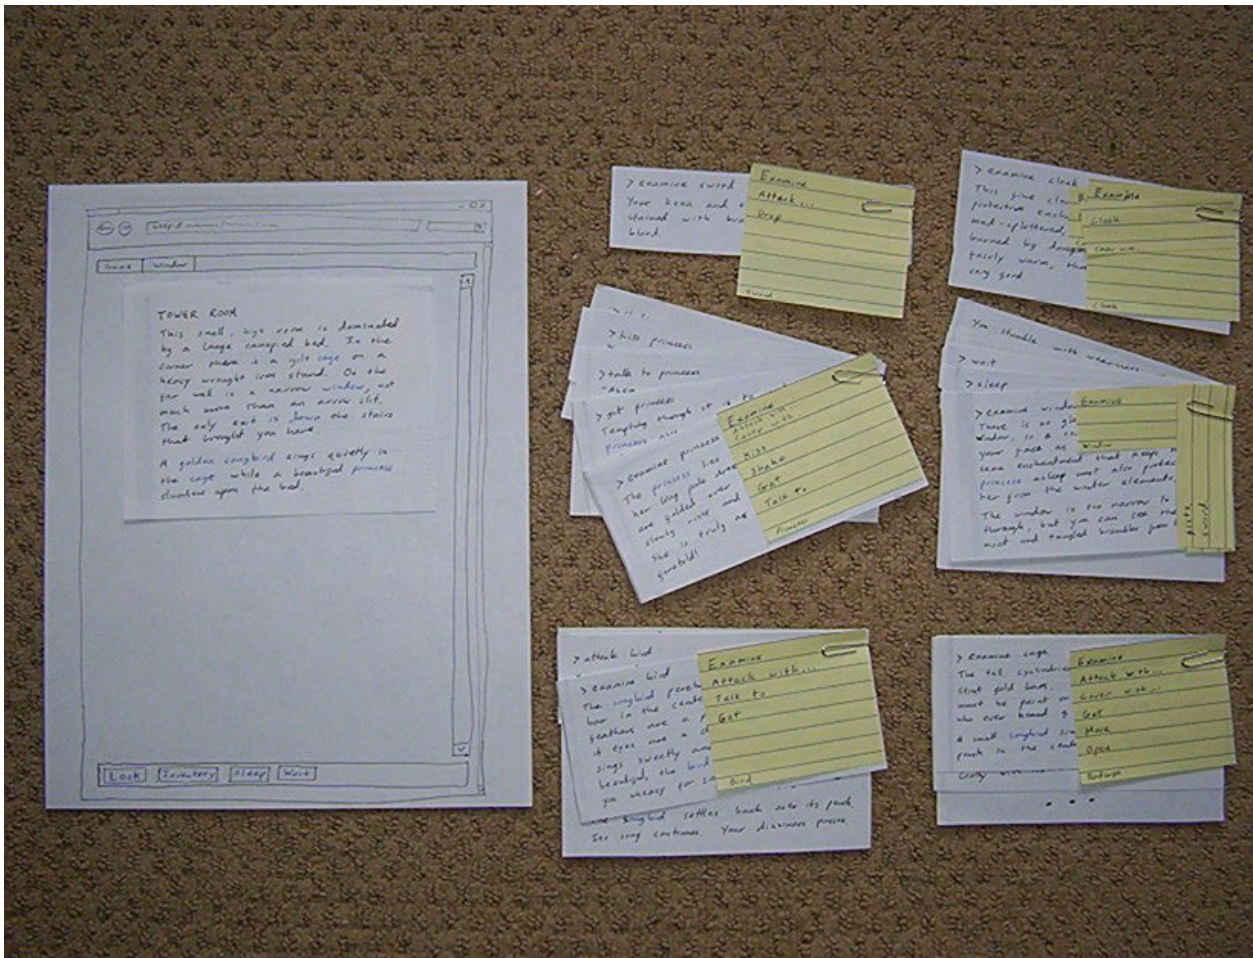 Game Window
TOWER ROOM
This small, high room is dominated
by a large canopied bed. In the
corner there is a gilt cage on a
heavy wrought iron stand. On the
far wall is a narrow window, not
much more than an arrow slit.
The only exit is down the stairs
that brought you here.
A golden songbird sings quietly in
the cage while a beautiful princess
slumbers upon the bed.
Look Inventory Sleep Wait
> examine sword
Your keen and
stained with
blood.
Examine
Attack...
Drop
Sword
> examine cloak
This fine
protective
mud-splattered,
burned by
fairly warm,
very good
Examine
Cloak
Cloak
> kiss princess
> talk to princess
> get princess
Tempting though it is to
princess
> examine princess
The princess lies
her long pale
are folded over
slowly rises and
She is truly as
foretold!
Examine
Attack with...
Cover with...
Kiss
Shake
Get
Talk to
Princess
You stumble with weariness
> wait
> sleep
> examine window
There is no
window, so a
your face as
same enchantment that keeps
princess asleep must also protect
her from the winter elements.
The window is too narrow to
through, but you can see the
moat and tangled bramble
Examine
Window
fists
sword
> attack bird
> examine bird
The songbird
bar in the
feathers are a
it eyes are a
sings sweetly and
beautiful, the bird
you uneasy for
songbird settles back onto its perch
Its song continues. Your dizziness passes.
Examine
Attack with...
Talk to
Get
Bird
> examine cage
The tall
stout gold bars,
must be paint or
who ever heard
A small songbird
perch in the
Examine
Attack with...
Cover with...
Get
Move
Open
...